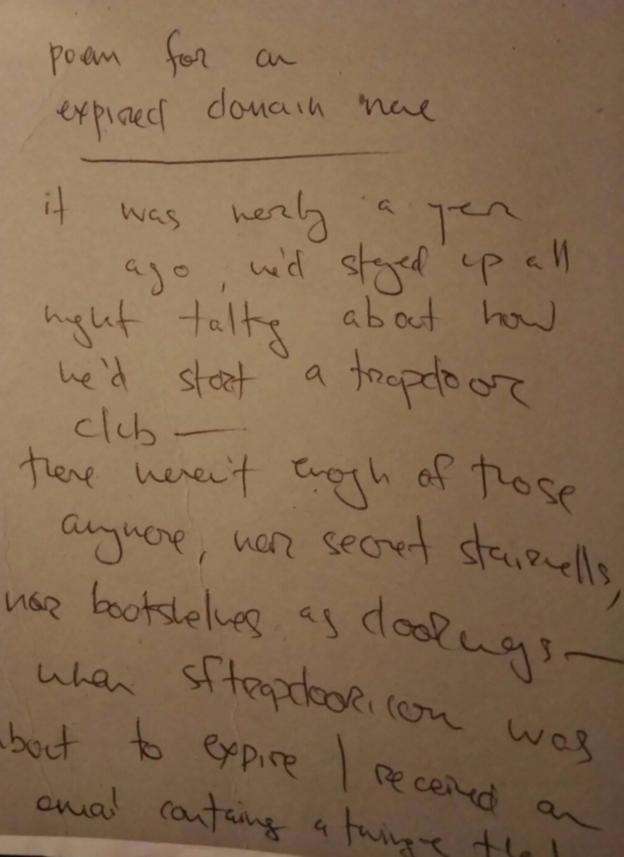 poem for an
expired domain name
it was nearly a year
ago, we'd stayed up all
night talking about how
we'd start a trapdoor
club —
there weren't enough of those
anymore, nor secret stairwells,
nor bookshelves as doorways —
when sftrapdoor.com was
about to expire I received an
email containing a twinge that